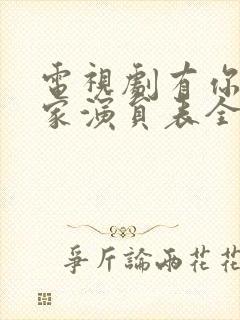 電視劇有你
家演員表全
爭斤論兩花花